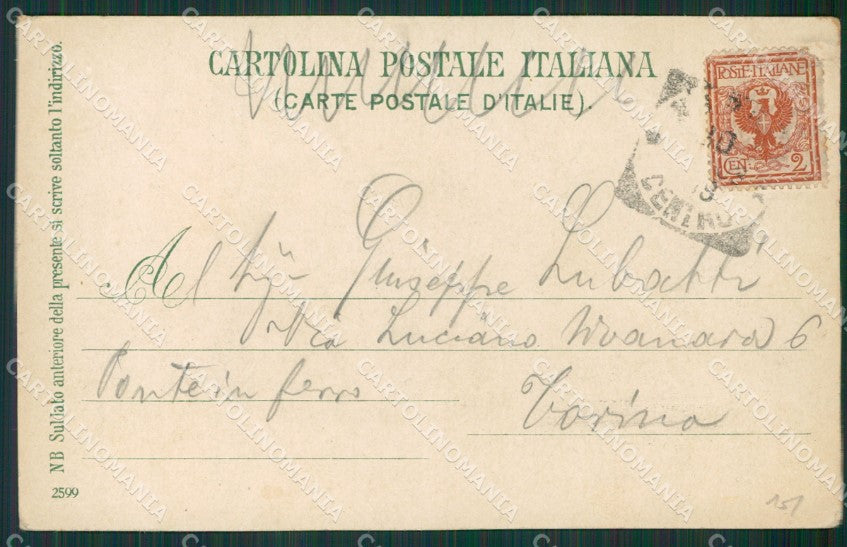 CARTOLINA POSTALE ITALIANA
(CARTE POSTALE D'ITALIE).
POSTE·ITALIANE
CEN. 2
10
CENTRO
Al Sig. Giuseppe Lubatti
Via Luciano 6
Ponte in ferro
Torino
NB Sul lato anteriore della presente si scrive soltanto l'indirizzo.
2599
151
CARTOLINOMANIA